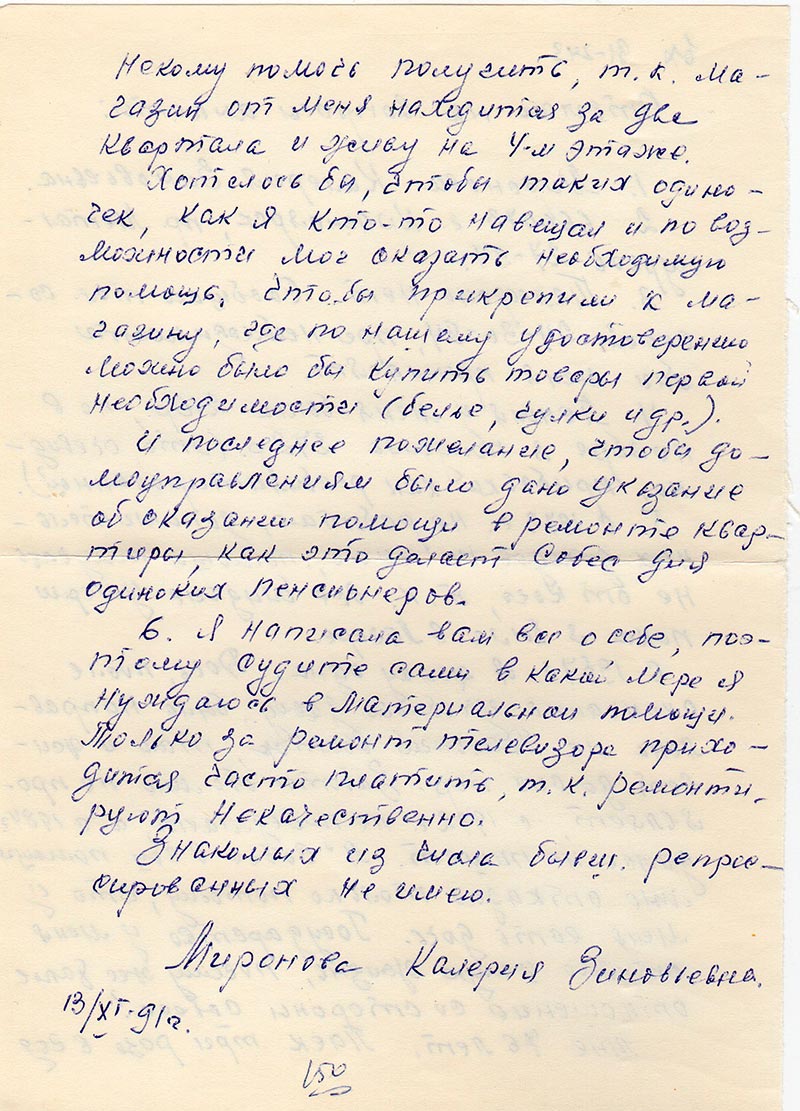 Некому помочь получить, т.к. ма-
газин от меня находится за две
квартала и живу на 4-м этаже.
Хотелось бы, чтобы таких одино-
чек, как я кто-то навещал и по воз-
можности мог оказать необходимую
помощь, чтобы прикрепили к ма-
газину, где по нашему удостоверению
можно было бы купить товары первой
необходимости (белье, чулки и др.).
И последнее пожелание, чтобы до-
моуправлениям было дано указание
об оказании помощи в ремонте квар-
тиры, как это делает Собес для
одиноких пенсионеров.
6. Я написала вам все о себе, поэ-
тому судите сами в какой мере я
нуждаюсь в материальной помощи.
Только за ремонт телевизора прихо-
дится часто платить, т.к. ремонти-
руют некачественно.
Знакомых из числа бывш. репрес-
сированных не имею.
Миронова Калерия Зиновьевна.
13/XI-91г.
150